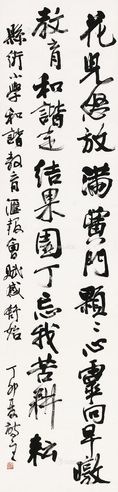 花儿怒放满黉门颗々心灵向早暾
教育和谐呈结果园丁忘我苦耕耘
县街小学和谐教育汇报会赋感
丁卯